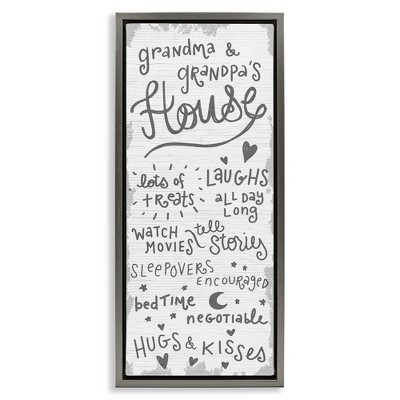 grandma &
grandpa's
House
lots of
treats
LAUGHS
all day
long
WATCH
MOVIES
tell
Stories
SLEEPOVERS
ENCOURAGED
bedtime
negotiable
HUGS & KISSES